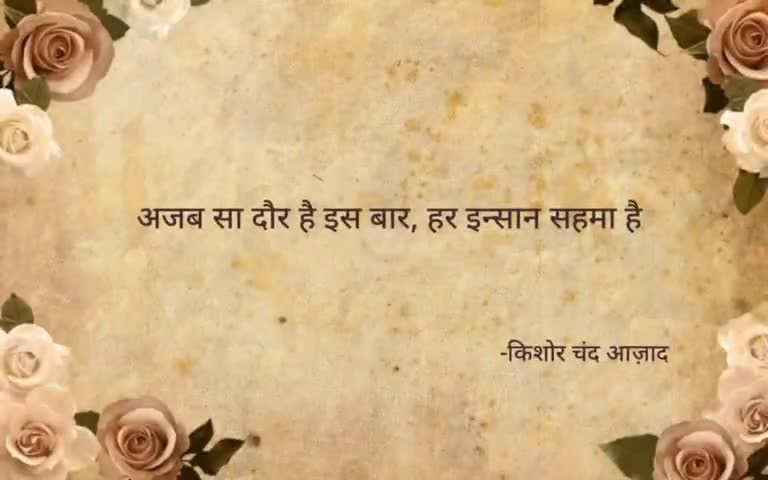 अजब सा दौर है इस बार, हर इन्सान सहमा है
-किशोर चंद आज़ाद